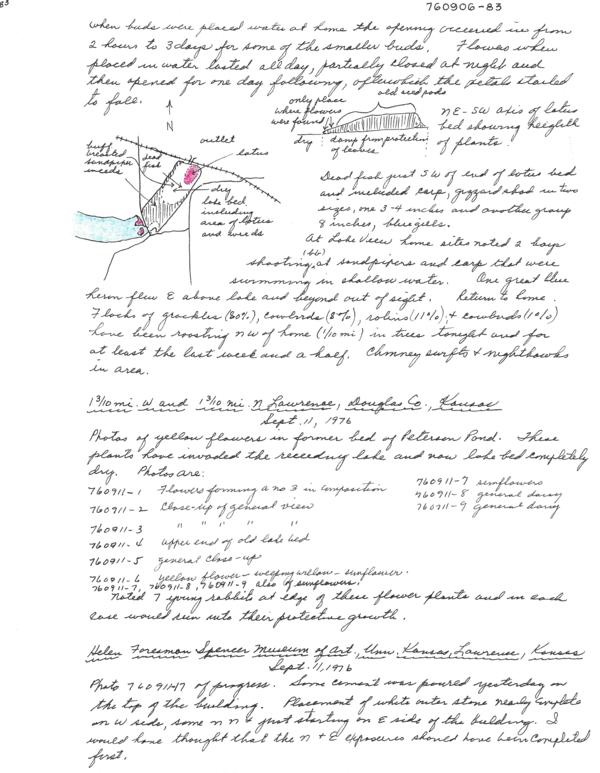 83
760906-83
when buds were placed water at home the opening occurred in from
2 hours to 3 days for some of the smaller buds. Flowers when
placed in water lasted all day, partially closed at night and
then opened for one day following, after which the petals started
to fall.
only place
where flowers
were found
old seed pods
NE-SW axis of lotus
bed showing heighth
of plants
dry
damp from protection
of leaves
N
outlet
lotus
buff
breasted
sandpiper
in weeds
dead
fish
dry
lake bed
including
area of lotus
and weeds
Dead fish just SW of end of lotus bed
and included carp, gizzard shad in two
sizes, one 3-4 inches and another group
8 inches, bluegills.
At Lake View home sites noted 2 boys
(bb)
shooting at sandpipers and carp that were
swimming in shallow water. One great blue
heron flew E above lake and beyond out of sight. Return to home.
Flocks of grackles (80%), cowbirds (8%), robins (11%), & cowbirds (1%)
have been roosting NW of home (1/10 mi) in trees tonight and for
at least the last week and a half. Chimney swifts & nighthawks
in area.
1 3/10 mi. W and 1 3/10 mi. N Lawrence, Douglas Co., Kansas
Sept. 11, 1976
Photos of yellow flowers in former bed of Peterson Pond. These
plants have invaded the receeding lake and now lake bed completely
dry. Photos are:
760911-1 Flowers forming a no 3 in composition
760911-2 Close-up of general view
760911-3 " " " "
760911-4 upper end of old lake bed
760911-5 general close-up
760911-6 yellow flower - weeping willow - sunflower.
760911-7 sunflowers
760911-8 general daisy
760911-9 general daisy
760911-7, 760911-8, 760911-9 also of sunflowers.
Noted 7 young rabbits at edge of these flower plants and in each
case would run into their protective growth.
Helen Foresman Spencer Museum of Art, Univ. Kansas, Lawrence, Kansas
Sept. 11, 1976
Photo 760911-17 of progress. Some cement was poured yesterday on
the top of the building. Placement of white outer stone nearly complete
on W side, some on N & just starting on E side of the building. I
would have thought that the N & E exposures should have been completed
first.